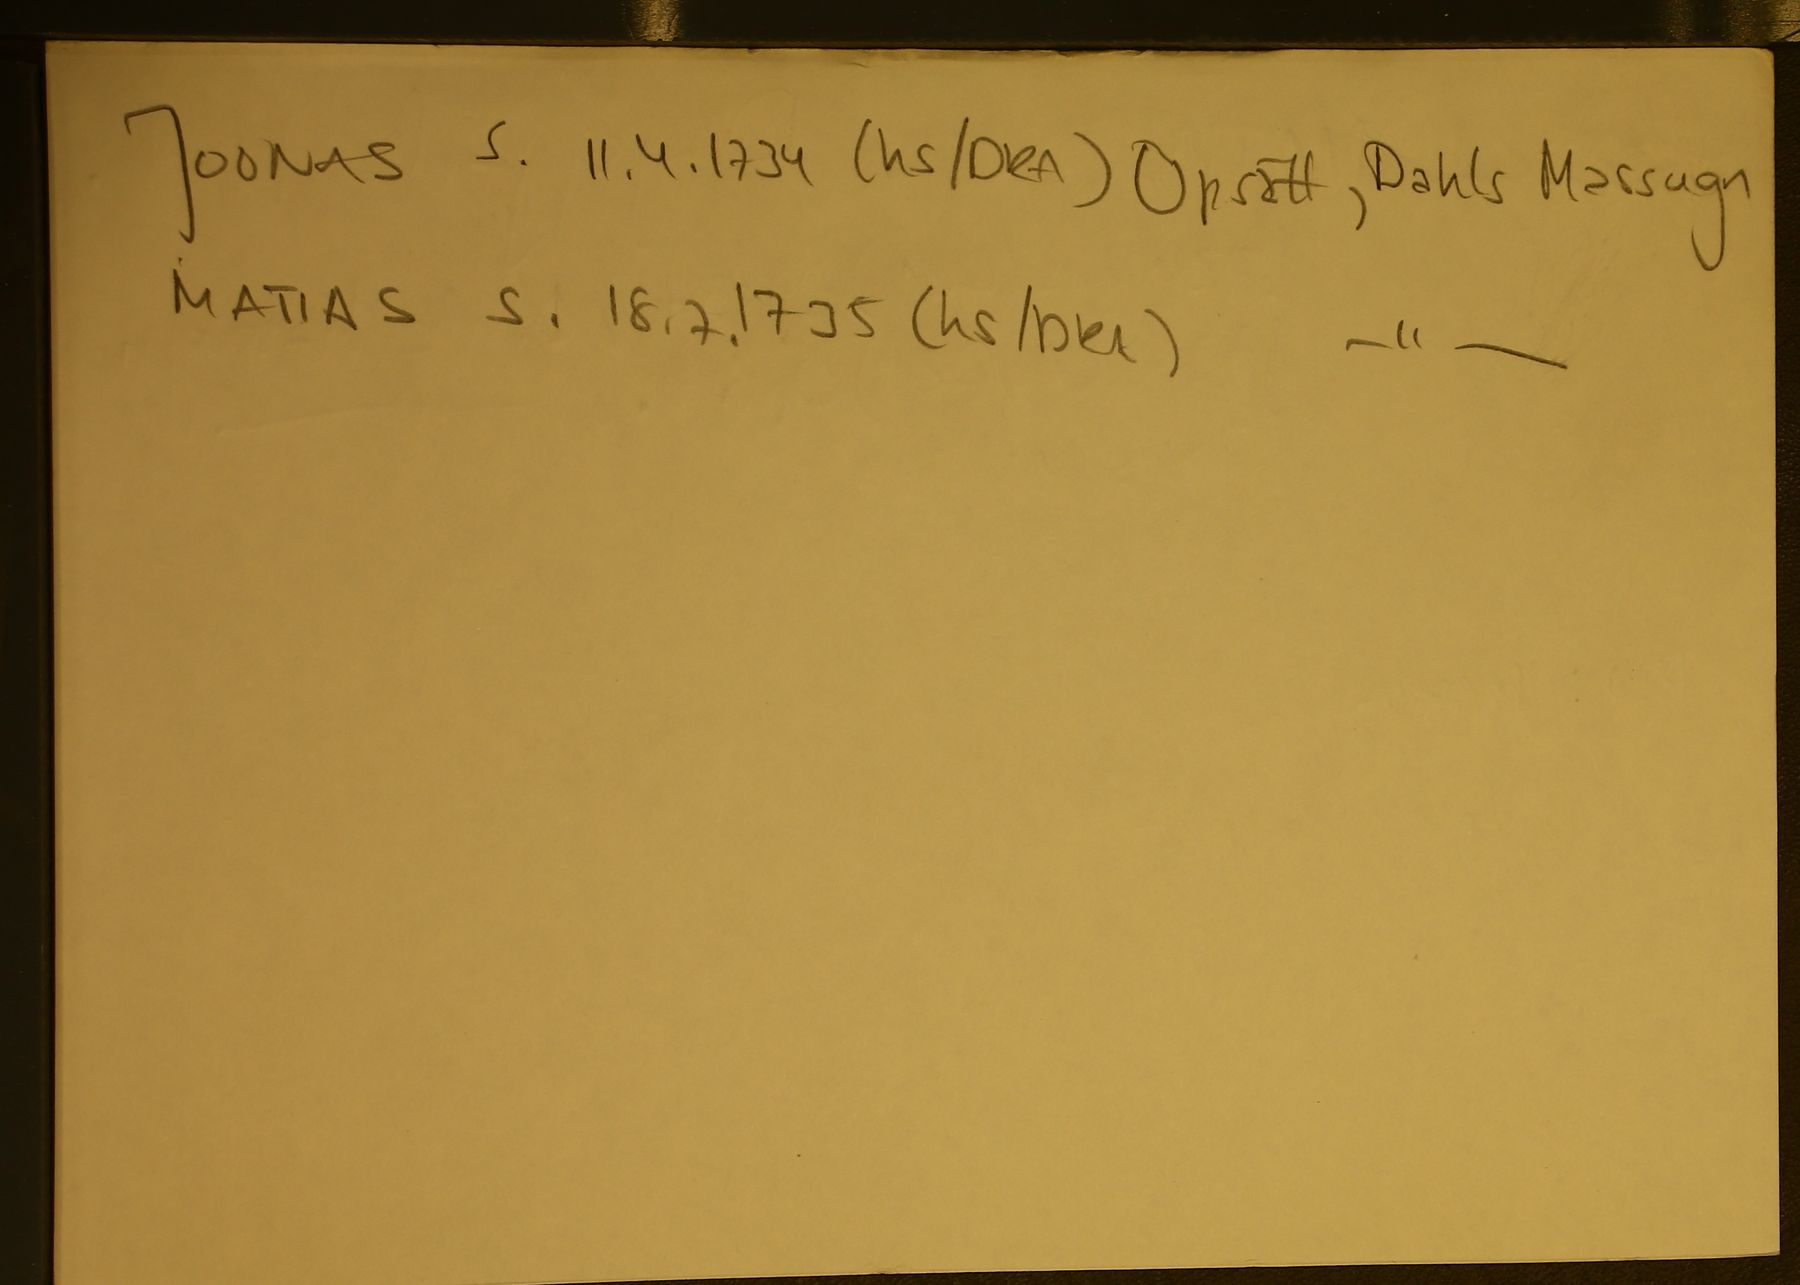 JOONAS S. 11.4.1734 (hs/DKA) Opsätt, Dahls Massugn
MATIAS S. 18.7.1735 (hs/DKA) —"—